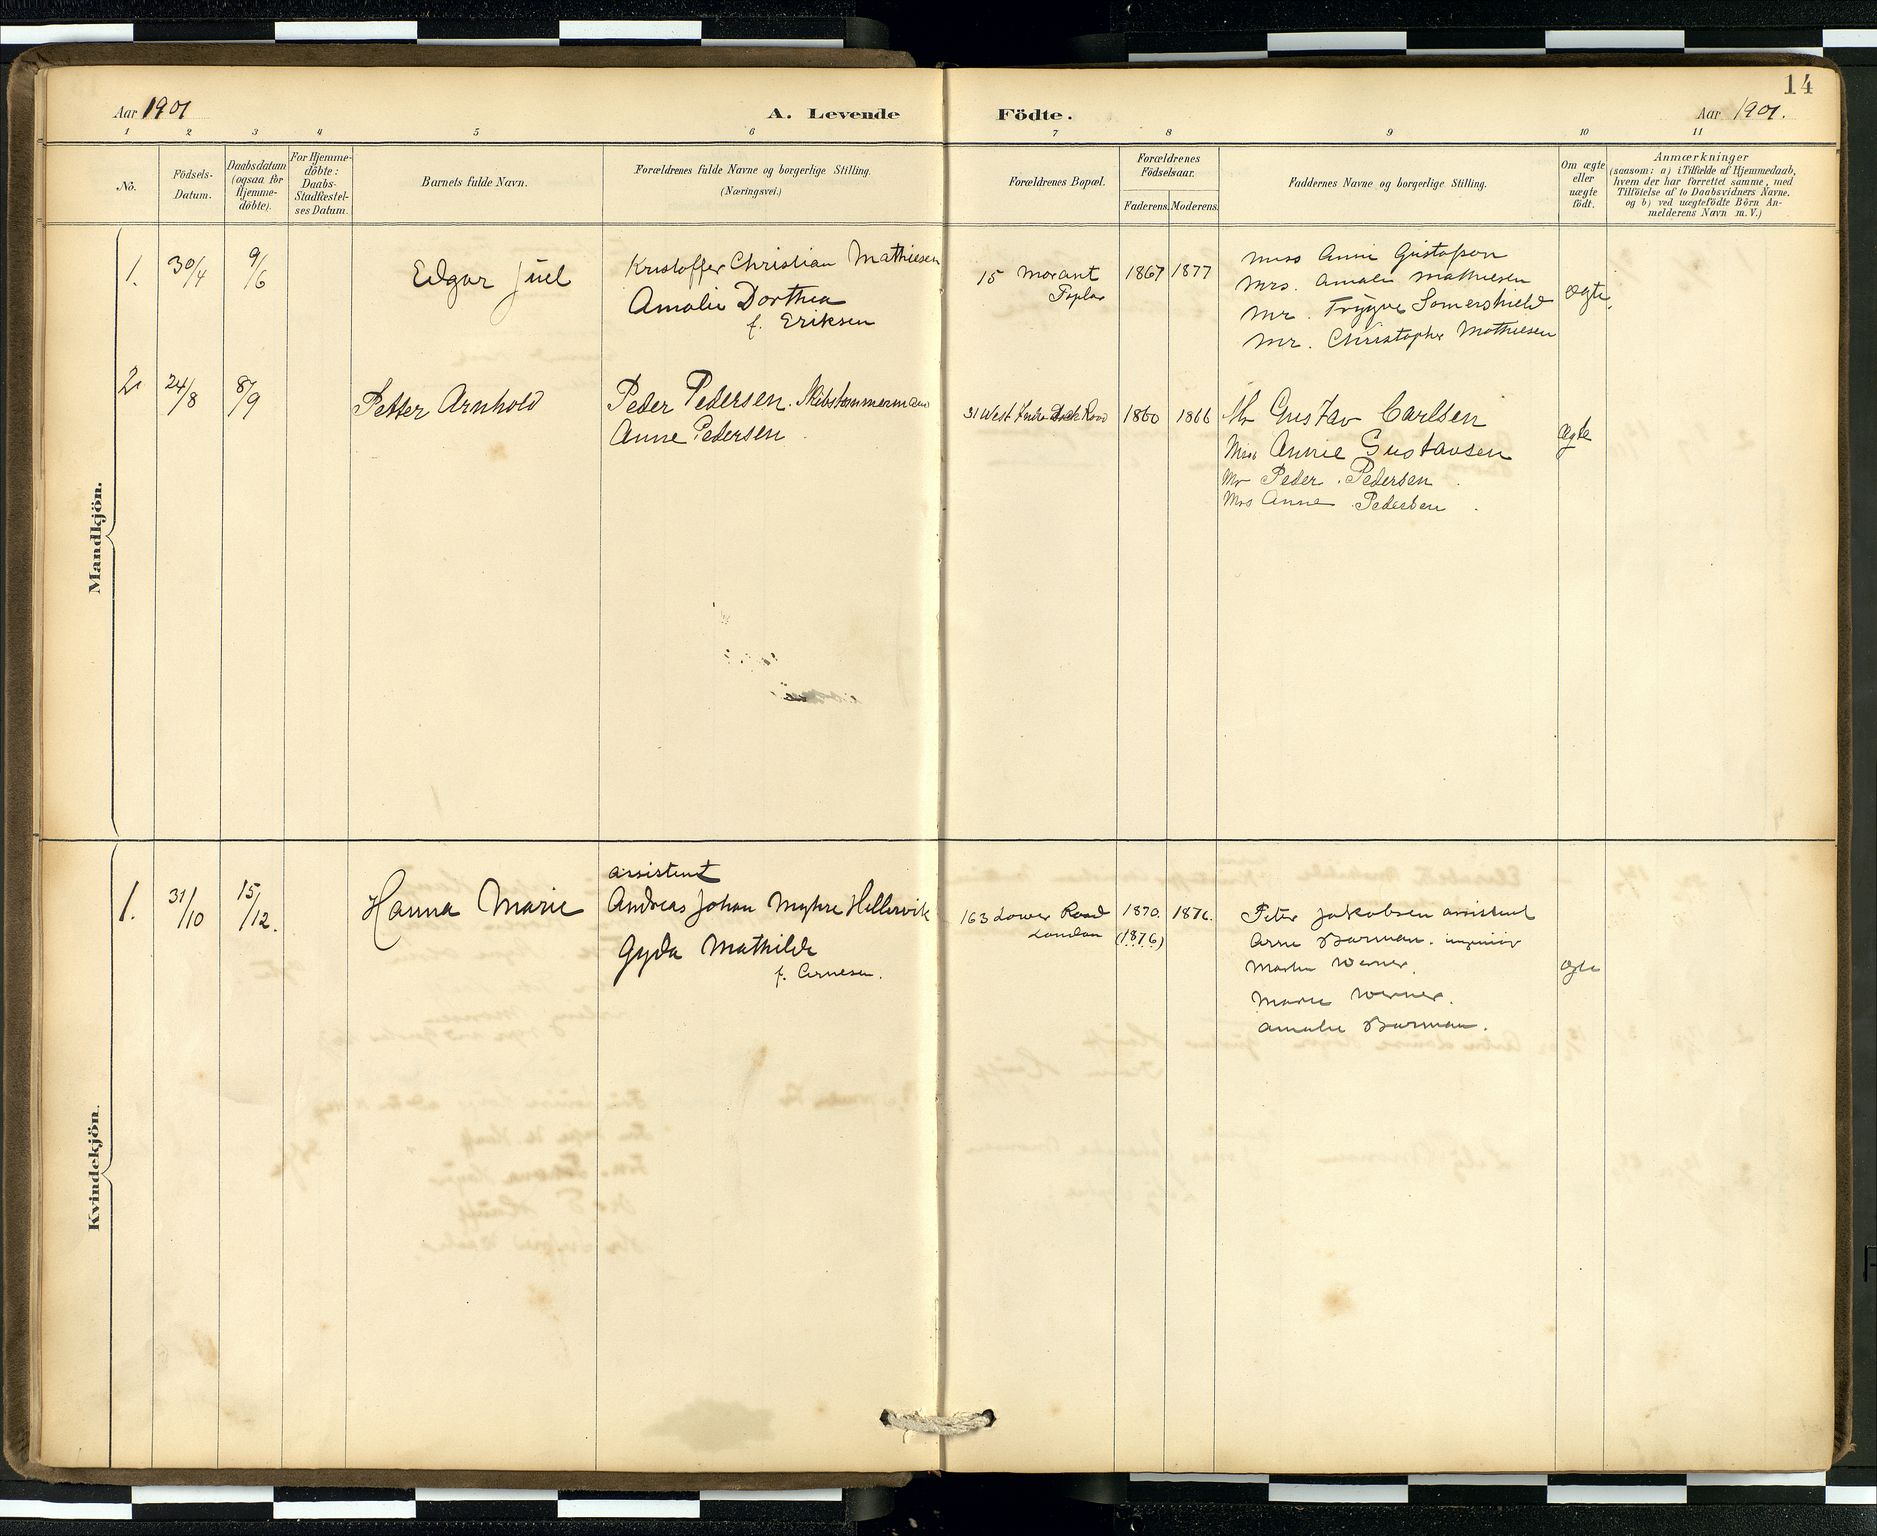 14
Aar 1901 A. Levende Födte. Aar 1901.
1 2 3 4 5 6 7 8 9 10 11
No.
Födsels-
Datum.
Daabsdatum
(ogsaa for
Hjemme-
döbte).
For Hjemme-
döbte:
Daabs-
Stadfæstel-
ses Datum.
Barnets fulde Navn.
Forældrenes fulde Navne og borgerlige Stilling.
(Næringsvei.)
Forældrenes Bopæl.
Forældrenes
Födselsaar.
Faderens. Moderens.
Faddernes Navne og borgerlige Stilling.
Om ægte
eller
uægte
födt.
Anmærkninger
(saasom: a) i Tilfælde af Hjemmedaab,
hvem der har forrettet samme, med
Tilföielse af to Daabsvidners Navne.
og b) ved uægtefödte Börn An-
melderens Navn m. V.)
Mandkjön.
1. 30/4 9/6 Edgar Juel
Kristoffer Christian Mathiesen
Amalie Dorthea
f. Eriksen
15 Morant
Poplar
1867 1877
Miss Anni Gustafson
Mrs. Amalie Mathiesen
Mr. Trygve Somershield
Mr. Christopher Mathiesen
ægte.
2 24/8 8/9 Petter Arnhold
Peder Pedersen. Skibstømmermand
Anne Pedersen
31 West India Dock Road
1860 1866
Mr Gustav Carlsen
Miss Annie Gustavsen
Mr Peder Pedersen
Mrs Anne Pedersen
ægte
Kvindekjön.
1. 31/10 15/12. Hanna Marie
assistent
Andreas Johan Myhre Hellervik
Gyda Mathilde
f. Arnesen.
163 Lower Road
London
1870.
(1876)
1876.
Peter Jakobsen assistent
Arne Burman. ingeniör
Martin Werner.
Marie Werner.
Amalie Burman.
ægte